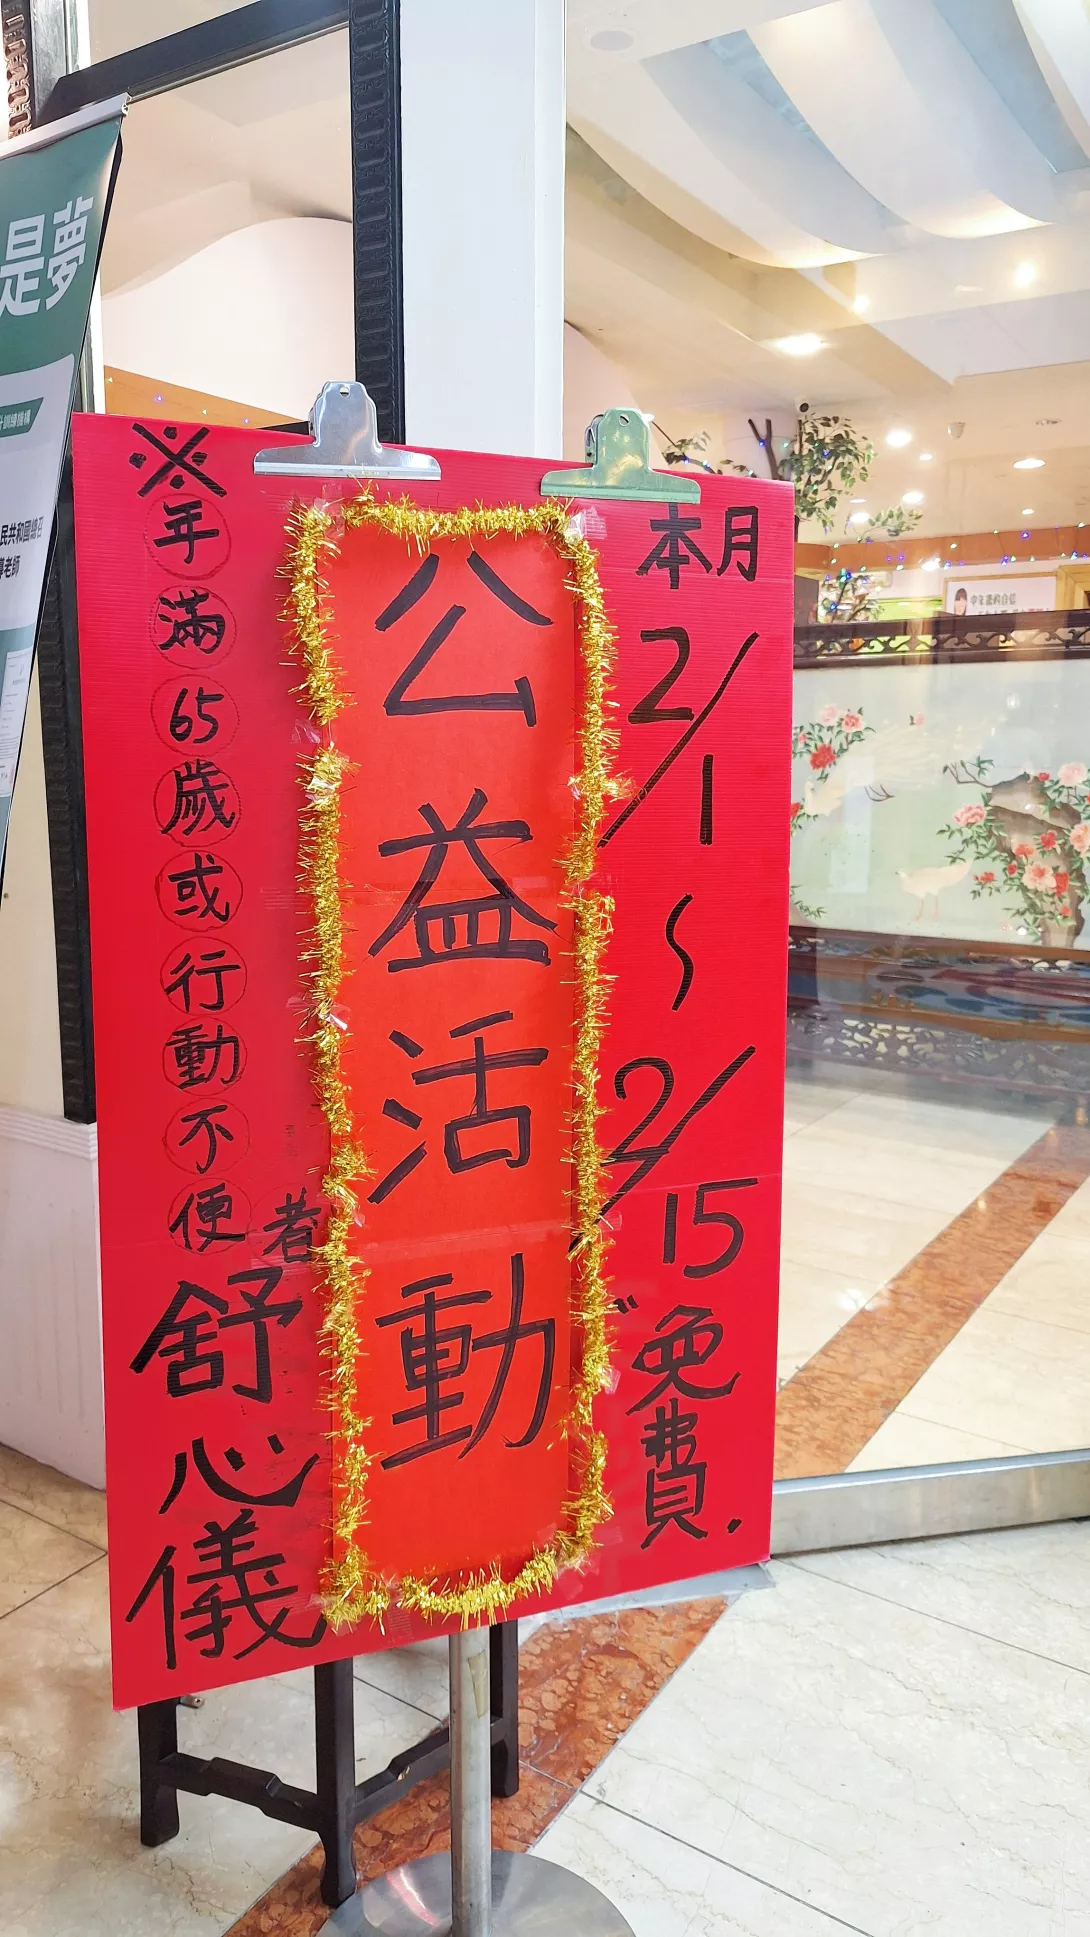 本月
2/1
～
2/15
"免費.
公益活動
※年滿65歲或行動不便者
舒心儀
是夢
民共和國總召
導老師